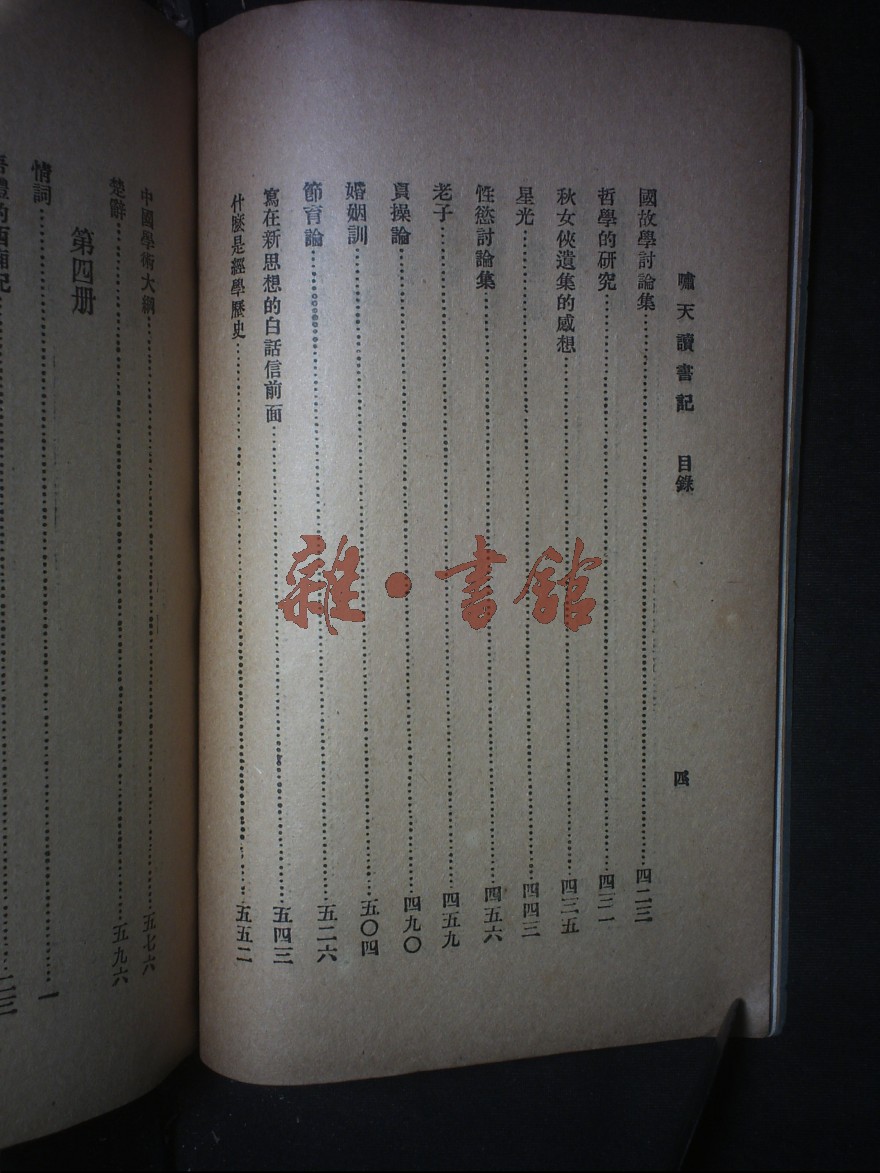 嘯天讀書記　目錄　四
國故學討論集…………四二三
哲學的研究…………四三一
秋女俠遺集的感想…………四三五
星光…………四四三
性慾討論集…………四五六
老子…………四五九
貞操論…………四九〇
婚姻訓…………五〇四
節育論…………五二六
寫在新思想的白話信前面…………五四三
什麼是經學歷史…………五五二
中國學術大綱…………五七六
楚辭…………五九六
第四册
情詞…………一
的西廂記…………二三
雜・書館